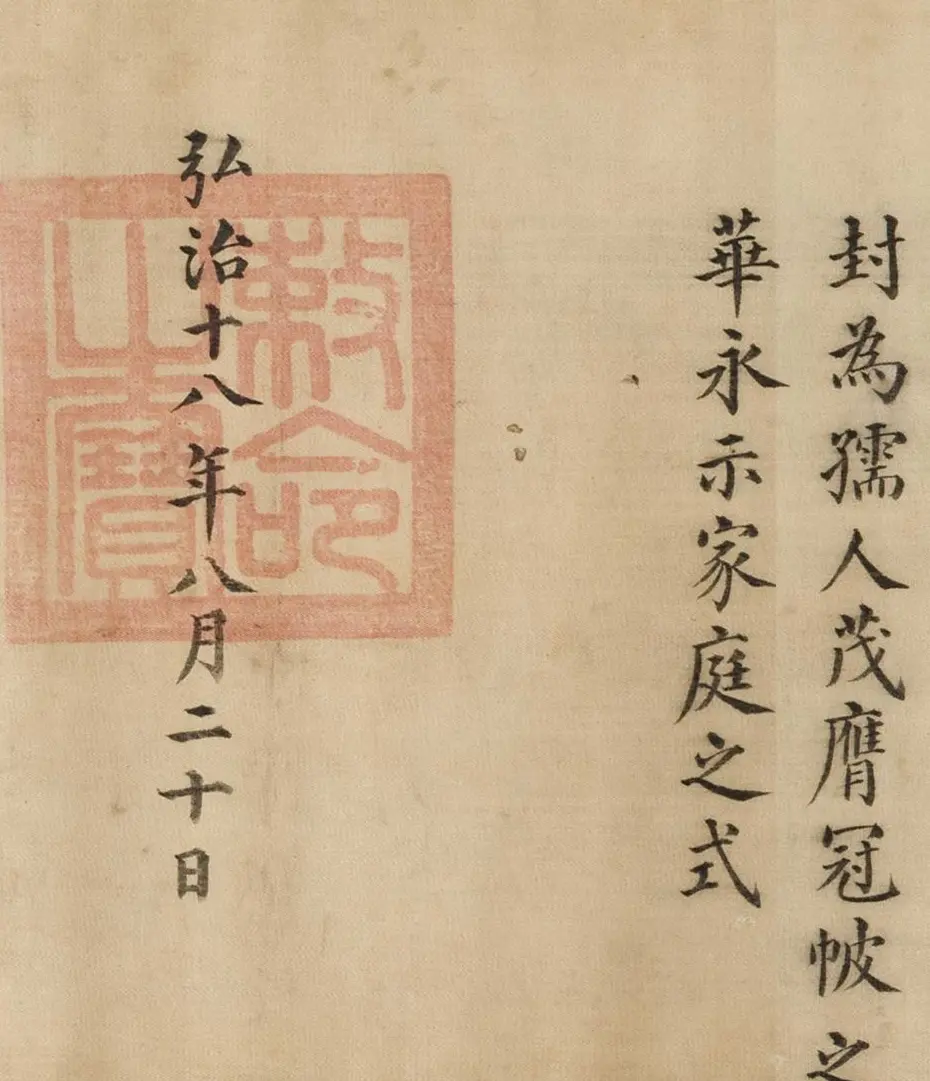 封為孺人茂膺冠帔之
華永示家庭之式
弘治十八年八月二十日
敕命之寶